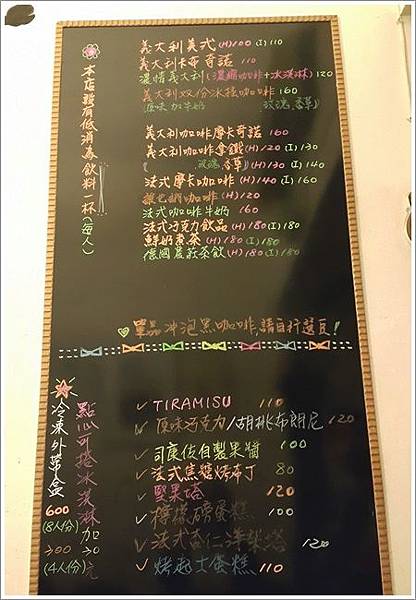 本店設有低消為飲料一杯(每人)
義大利美式 (H)100 (I) 110
義大利卡布奇諾 (H) 110
濃情義大利 (濃縮咖啡+冰淇淋) 120
義大利双份冰釀咖啡 160
(原味 加牛奶 玫瑰,香草)
義大利咖啡摩卡奇諾 160
義大利咖啡拿鐵 (H) 120 (I) 130
(玫瑰,香草) (H) 130 (I) 140
法式摩卡咖啡 (H) 140 (I) 160
咖啡 (H) 120
法式咖啡牛奶 160
法式巧克力飲品 (H) 180 (I) 180
鮮奶煮茶 (H) 180 (I) 180
德國農莊茶飲 (H) 180 (I) 180
單品沖泡黑咖啡,請自行選豆!
點心可搭冰淇淋加30元
冷凍外帶盒
600
(8人份)
300
(4人份)
✓ TIRAMISU 110
✓ 原味巧克力/胡桃布朗尼 120
✓ 司康佐自製果醬 100
✓ 法式焦糖烤布丁 80
✓ 堅果塔 120
✓ 檸檬磅蛋糕 100
✓ 法式杏仁洋梨塔 120
✓ 烤起士蛋糕 110